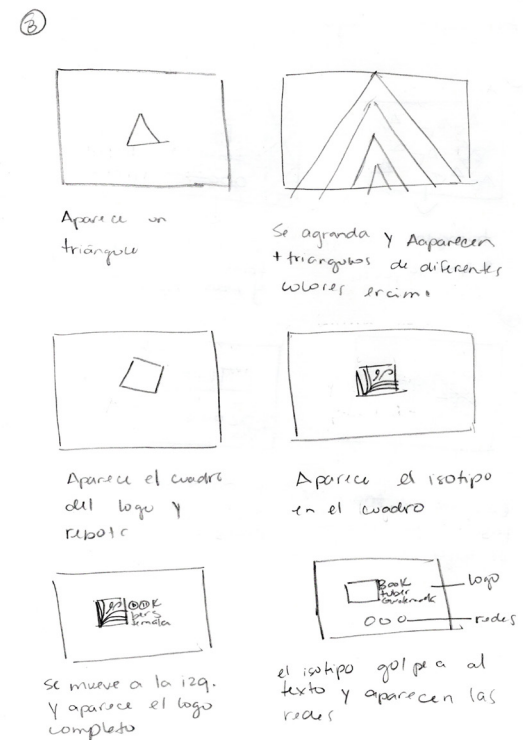 3
Aparece un
triángulo
Se agranda y Aaparecen
+ triangulos de diferentes
colores encima
Aparece el cuadro
del logo y
rebota
Aparece el isotipo
en el cuadro
BOOK
se mueve a la izq.
y aparece el logo
completo
Book
tuber
logo
redes
el isotipo golpea al
texto y aparecen las
redes